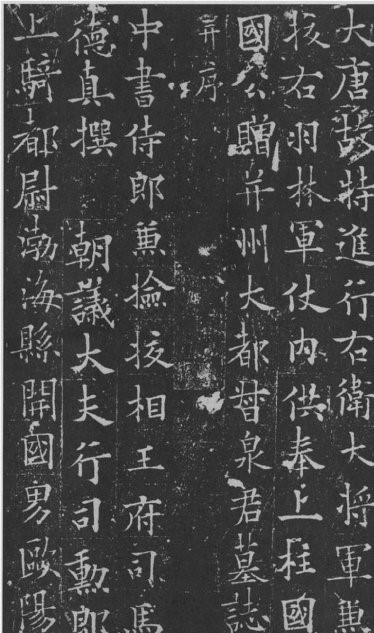 大唐故特進行右衛大将軍兼
挍右羽林軍仗内供奉上柱國
國公贈并州大都督泉君墓誌
并序
中書侍郎兼撿挍相王府司馬
德真撰　朝議大夫行司勳郎
上騎都尉渤海縣開國男歐陽